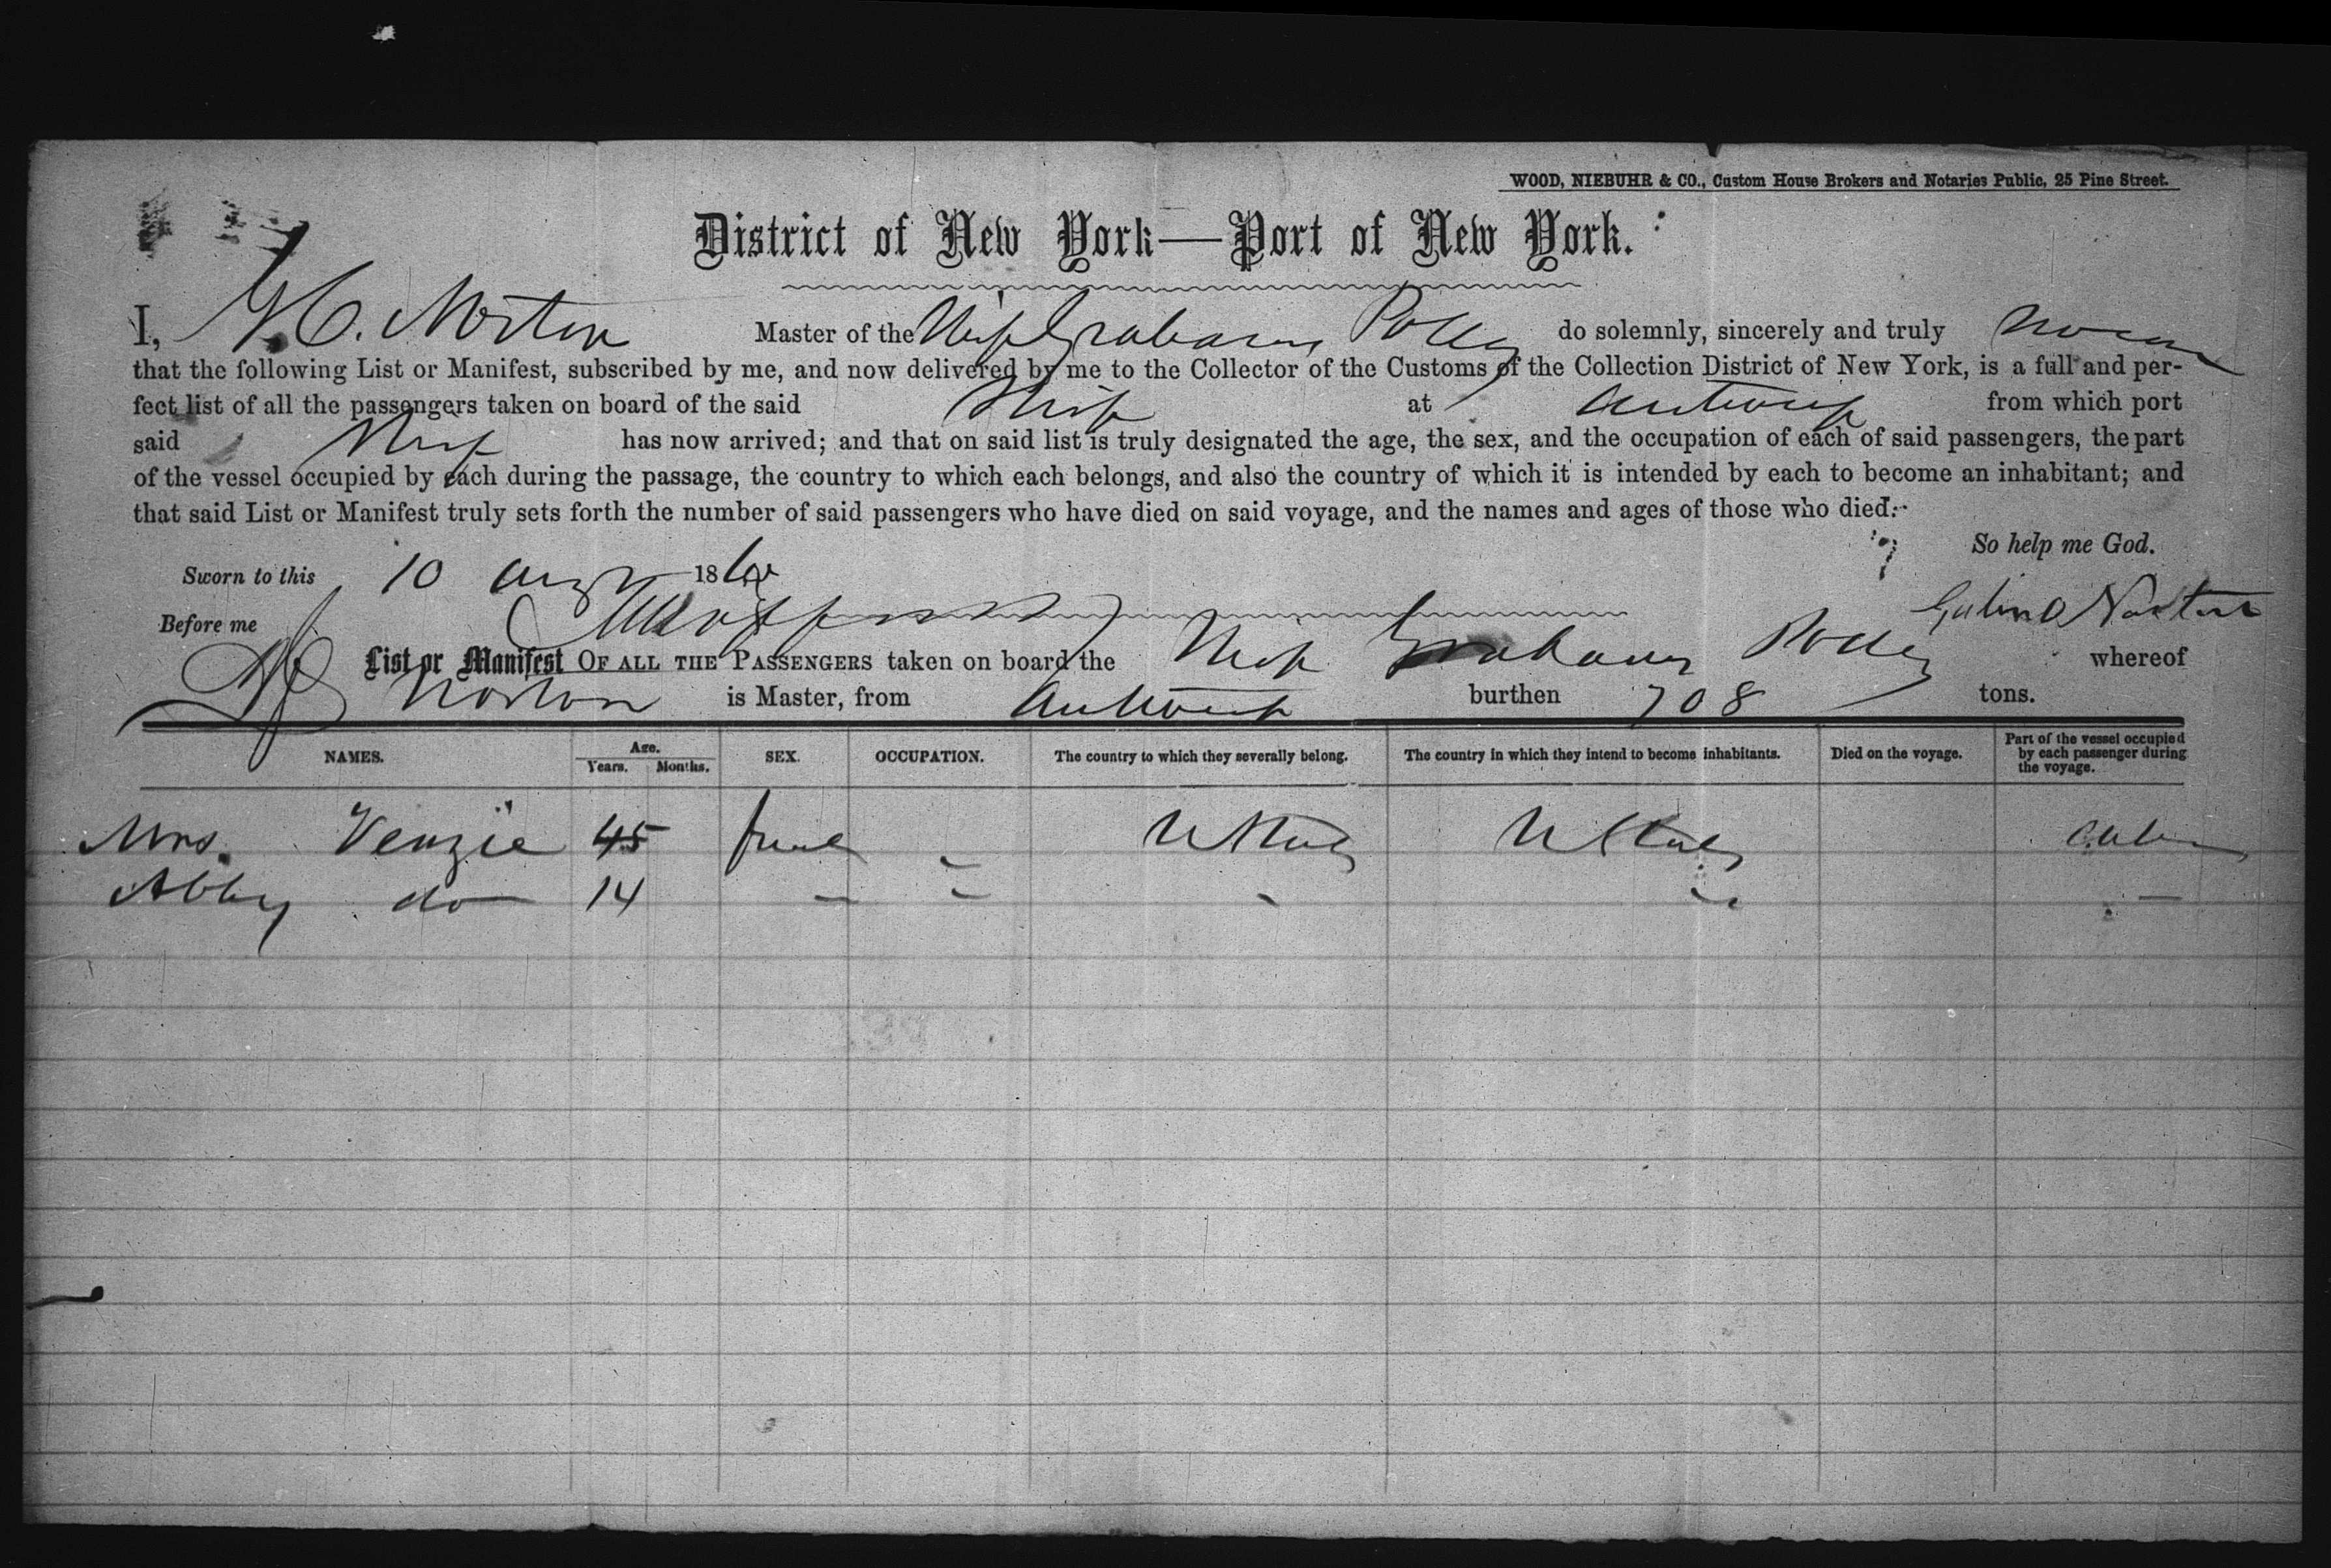 WOOD, NIEBUHR & CO., Custom House Brokers and Notaries Public, 25 Pine Street.
District of New York—Port of New York.
I, G. C. Norton Master of the Ship Grahams Polley do solemnly, sincerely and truly swear
that the following List or Manifest, subscribed by me, and now delivered by me to the Collector of the Customs of the Collection District of New York, is a full and per-
fect list of all the passengers taken on board of the said Ship at Antwerp from which port
said Ship has now arrived; and that on said list is truly designated the age, the sex, and the occupation of each of said passengers, the part
of the vessel occupied by each during the passage, the country to which each belongs, and also the country of which it is intended by each to become an inhabitant; and
that said List or Manifest truly sets forth the number of said passengers who have died on said voyage, and the names and ages of those who died.
So help me God.
Sworn to this 10 Augt 186
Before me Norton
List or Manifest OF ALL THE PASSENGERS taken on board the Ship Grahams Polley whereof
Norton is Master, from Antwerp burthen 708 tons.
NAMES. Age. Years. Months. SEX. OCCUPATION. The country to which they severally belong. The country in which they intend to become inhabitants. Died on the voyage. Part of the vessel occupied by each passenger during the voyage.
Mrs. Venzie 45 female - U States U States Cabin
Abby do 14 - - - - -